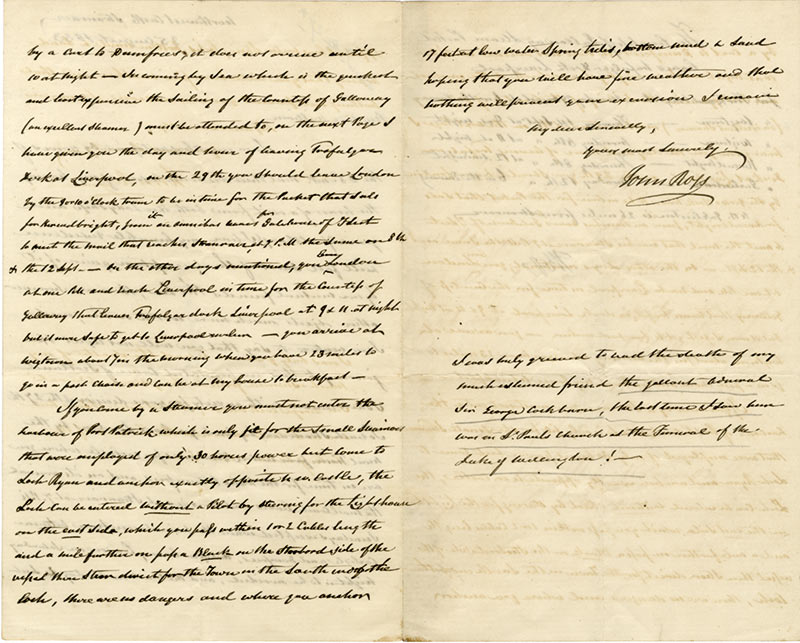 by a Cart to Dumfries, it does not arrive until
10 at night — In coming by Sea which is the quickest
and least expensive the Sailing of the Countess of Galloway
(an excellent Steamer) must be attended to, on the next Page I
have given you the day and hour of leaving Trafalgar
Dock at Liverpool, on the 29th you should leave London
by the 9 or 10 o'Clock train to be in time for the Packet that Sails
for Kirkcudbright, from it an omnibus leaves for Gatehouse of Fleet
to meet the mail that reaches Stranraer, at 9 P.M. the Same on 8th
& the 12 Sept — on the other days mentioned, you leave London
at one P.M and reach Liverpool in time for the Countess of
Galloway that leaves Trafalgar dock Liverpool at 9 & 11 at night
but it is more Safe to get to Liverpool — you arrive at
Wigtown about 7 in the morning when you have 23 miles to
go in a post Chaise and can be at my house to breakfast —
If you come by a Steamer you must not enter the
harbour of Port Patrick which is only fit for the Small Steamers
that were employed of only 30 horses power but come to
Loch Ryan and anchor exactly opposite N.W. Castle, the
Loch can be entered without a Pilot by steering for the Lighthouse
on the east Side, which you pass within 1 or 2 Cables length
and a mile further on pass a Black on the Starbord Side of the
vessel then Steer direct for the Town in the South end of the
Loch, there are no dangers and where you anchor
17 feet at low water Spring tides, bottom mud & Sand
hoping that you will have fine weather and that
nothing will prevent your excursion I remain
My dear
Yours most Sincerely
John Ross
I was truly grieved to read the death of my
much esteemed friend the gallant Admiral
Sir George Cockburn, the last time I Saw him
was in St. Pauls Church at the Funeral of the
Duke of Wellington! —